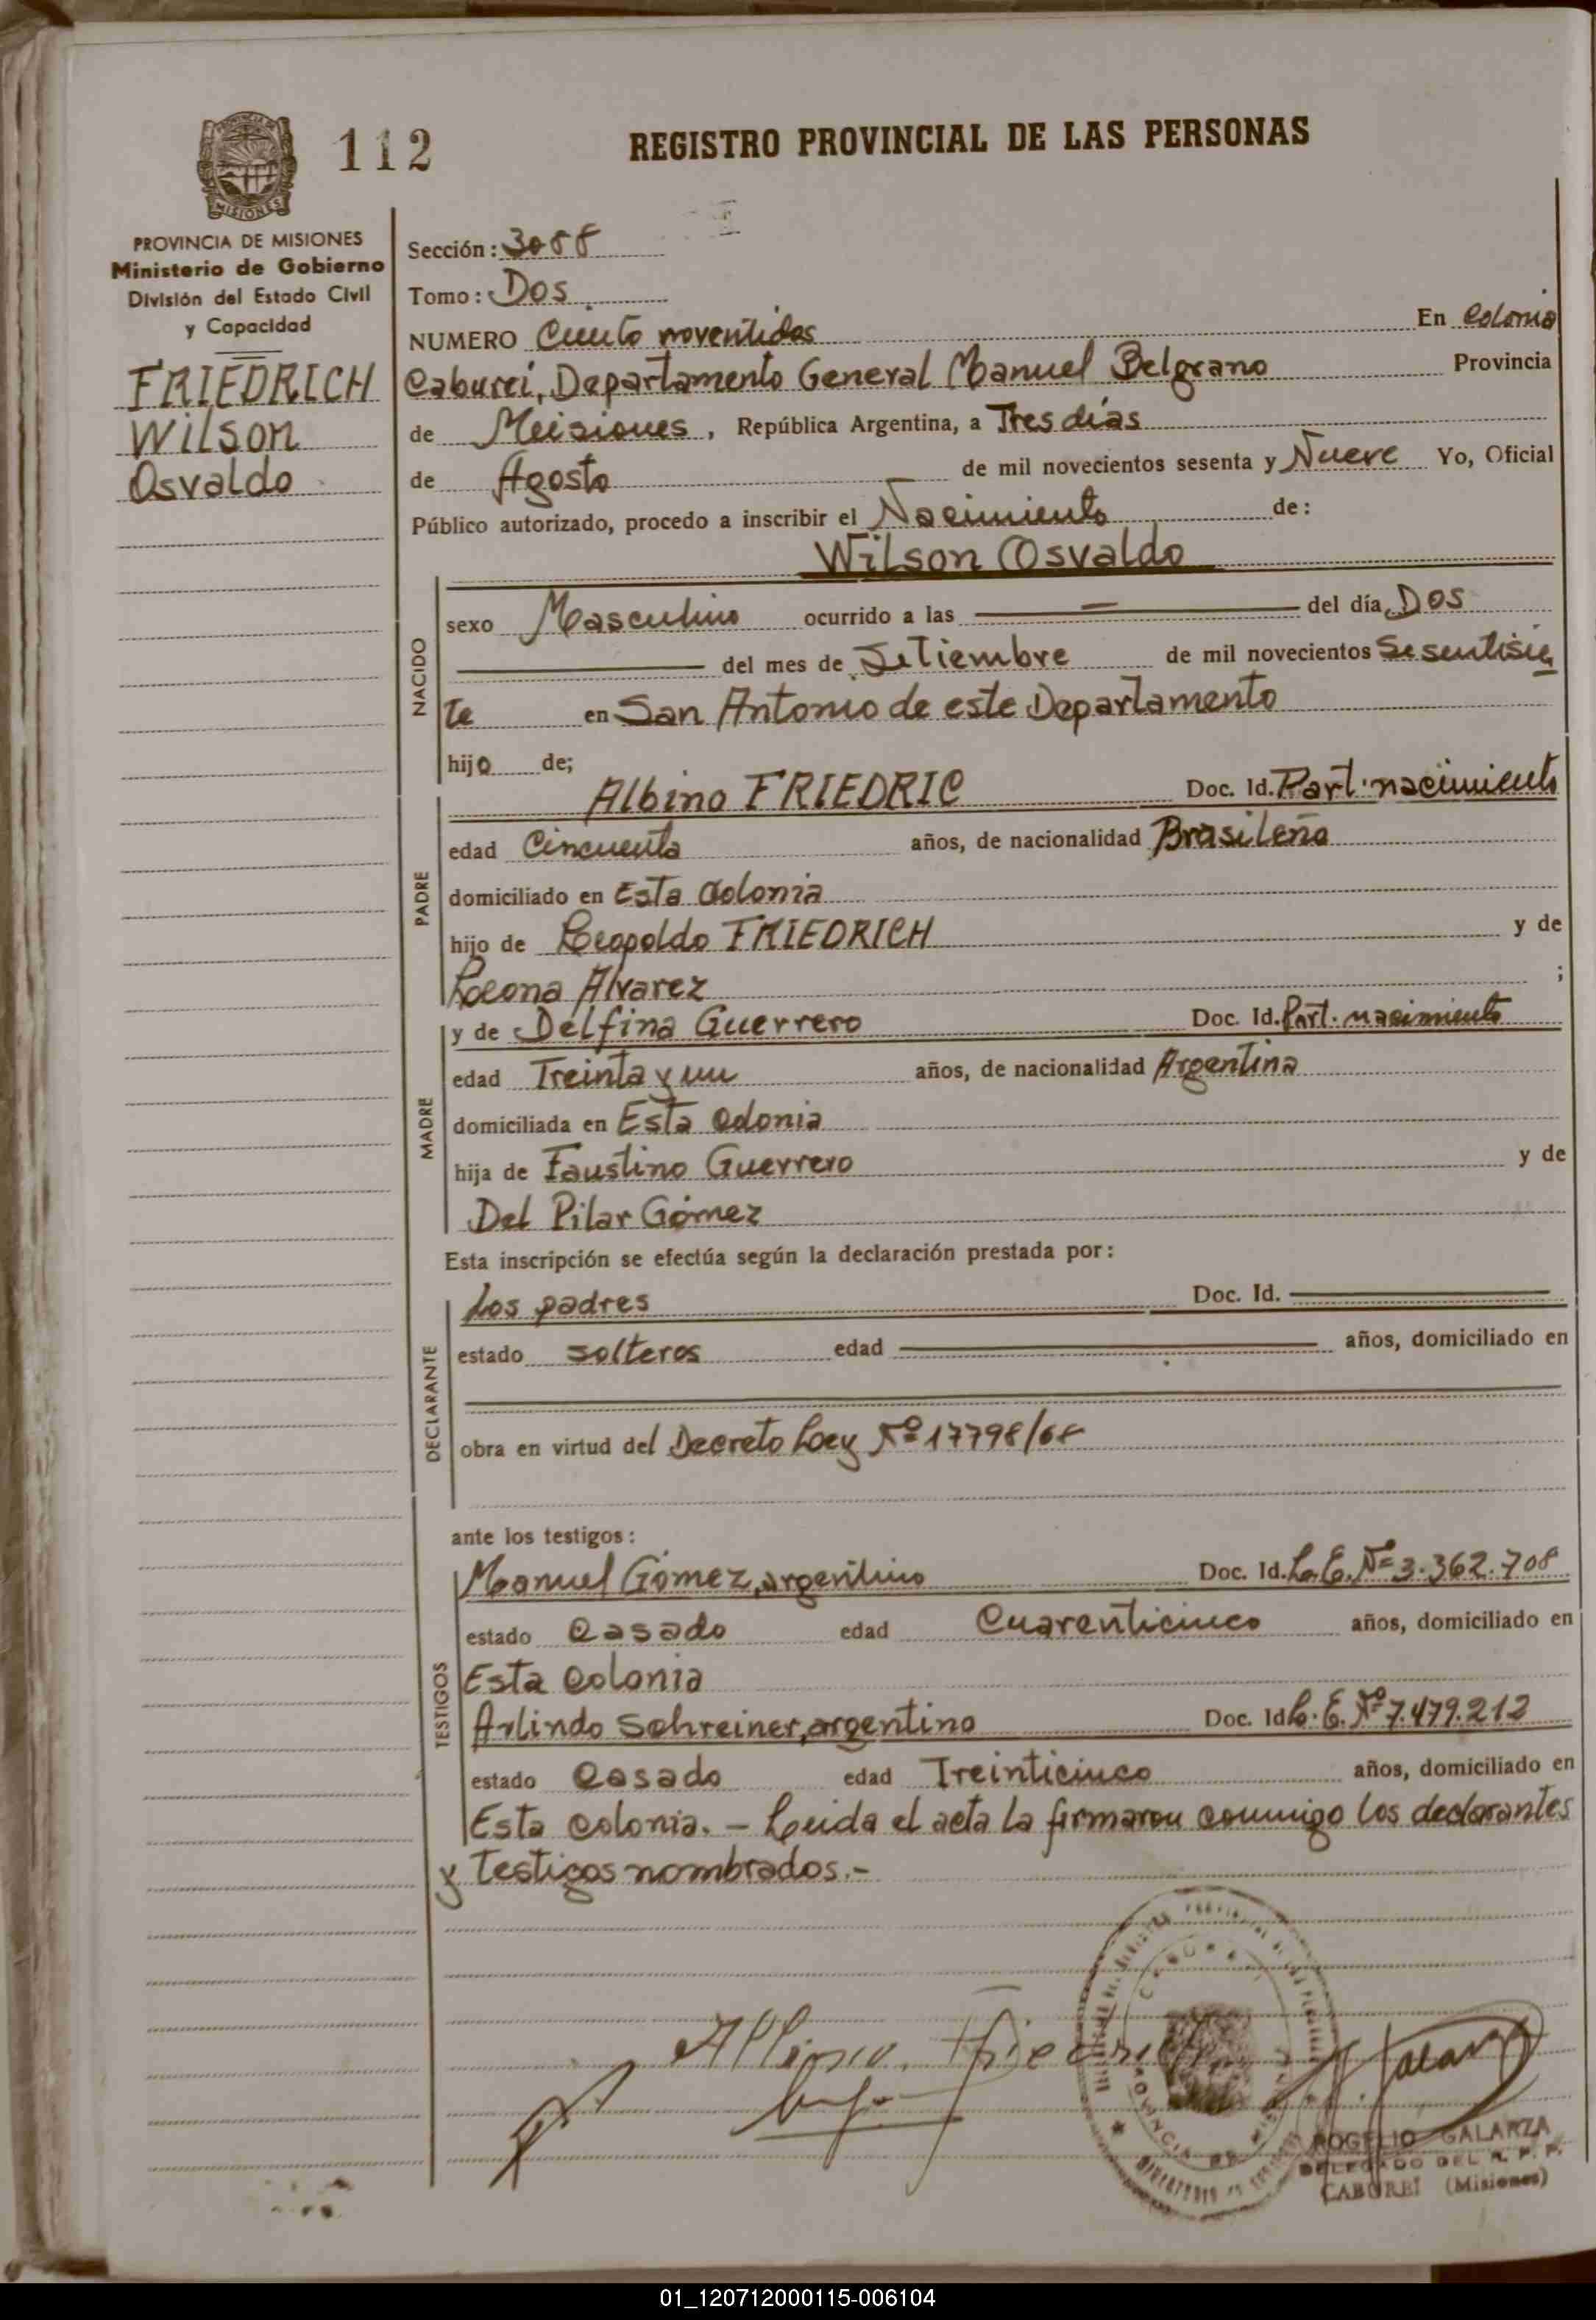 112
REGISTRO PROVINCIAL DE LAS PERSONAS
MISIONES
PROVINCIA DE MISIONES
Ministerio de Gobierno
División del Estado Civil
y Capacidad
FRIEDRICH
Wilson
Osvaldo
Sección: 3088
Tomo: Dos
NUMERO Ciento noventidos En Colonia
Caburei, Departamento General Manuel Belgrano Provincia
de Misiones, República Argentina, a Tres días
de Agosto de mil novecientos sesenta y Nueve Yo, Oficial
Público autorizado, procedo a inscribir el Nacimiento de:
Wilson Osvaldo
NACIDO
sexo Masculino ocurrido a las — del día Dos
del mes de Setiembre de mil novecientos Sesentisie
te en San Antonio de este Departamento
hijo de;
PADRE
Albino FRIEDRIC Doc. Id. Part. nacimiento
edad Cincuenta años, de nacionalidad Brasileña
domiciliado en Esta Colonia
hijo de Leopoldo FRIEDRICH y de
Leona Alvarez ;
MADRE
y de Delfina Guerrero Doc. Id. Part. nacimiento
edad Treinta y un años, de nacionalidad Argentina
domiciliada en Esta Colonia
hija de Faustino Guerrero y de
Del Pilar Gómez
Esta inscripción se efectúa según la declaración prestada por:
DECLARANTE
Los padres Doc. Id.
estado solteros edad años, domiciliado en
obra en virtud del Decreto Ley Nº 17798/68
ante los testigos:
TESTIGOS
Manuel Gómez, argentino Doc. Id. L.E. Nº 3.362.708
estado Casado edad Cuarenticinco años, domiciliado en
Esta Colonia
Arlindo Schreiner, argentino Doc. Id L.E. Nº 7.479.212
estado Casado edad Treinticinco años, domiciliado en
Esta Colonia. - Leida el acta la firmaron conmigo los declarantes
y testigos nombrados.-
Albino Friedrich
ROGELIO GALARZA
DELEGADO DEL R. P. P.
CABUREI (Misiones)
01_120712000115-006104